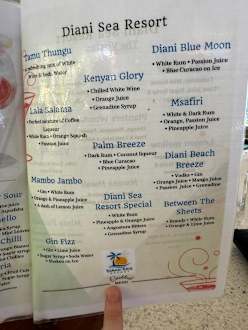 Diani Sea Resort
Tamu Thungu
Diani Blue Moon
• White Rum • Passion Juice
• Blue Curacao on Ice
Kenyan Glory
• Chilled White Wine
• Orange Juice
• Grenadine Syrup
Lala Salama
Liqueur
• White Rum • Orange Squash
• Passion Juice
Msafiri
• White Rum • Dark Rum
• Orange, Passion Juice
• Pineapple Juice
Palm Breeze
• Dark Rum • Coconut liqueur
• Blue Curacao
• Pineapple Juice
Diani Beach
Breeze
• Vodka • Gin
• Orange Juice • Mango Juice
• Passion Juice • Grenadine
Mambo Jambo
• Gin • White Rum
• Orange & Pineapple Juice
• A dash of Lemon Juice
Diani Sea
Resort Special
• White Rum
• Pineapple & Orange Juice
• Angostura Bitters
• Grenadine Syrup
Between The
Sheets
• Brandy • White Rum
• Orange & Lime Juice
Gin Fizz
• Gin • Lime Juice
• Sugar Syrup • Soda Water
• Shaken on Ice
MENU